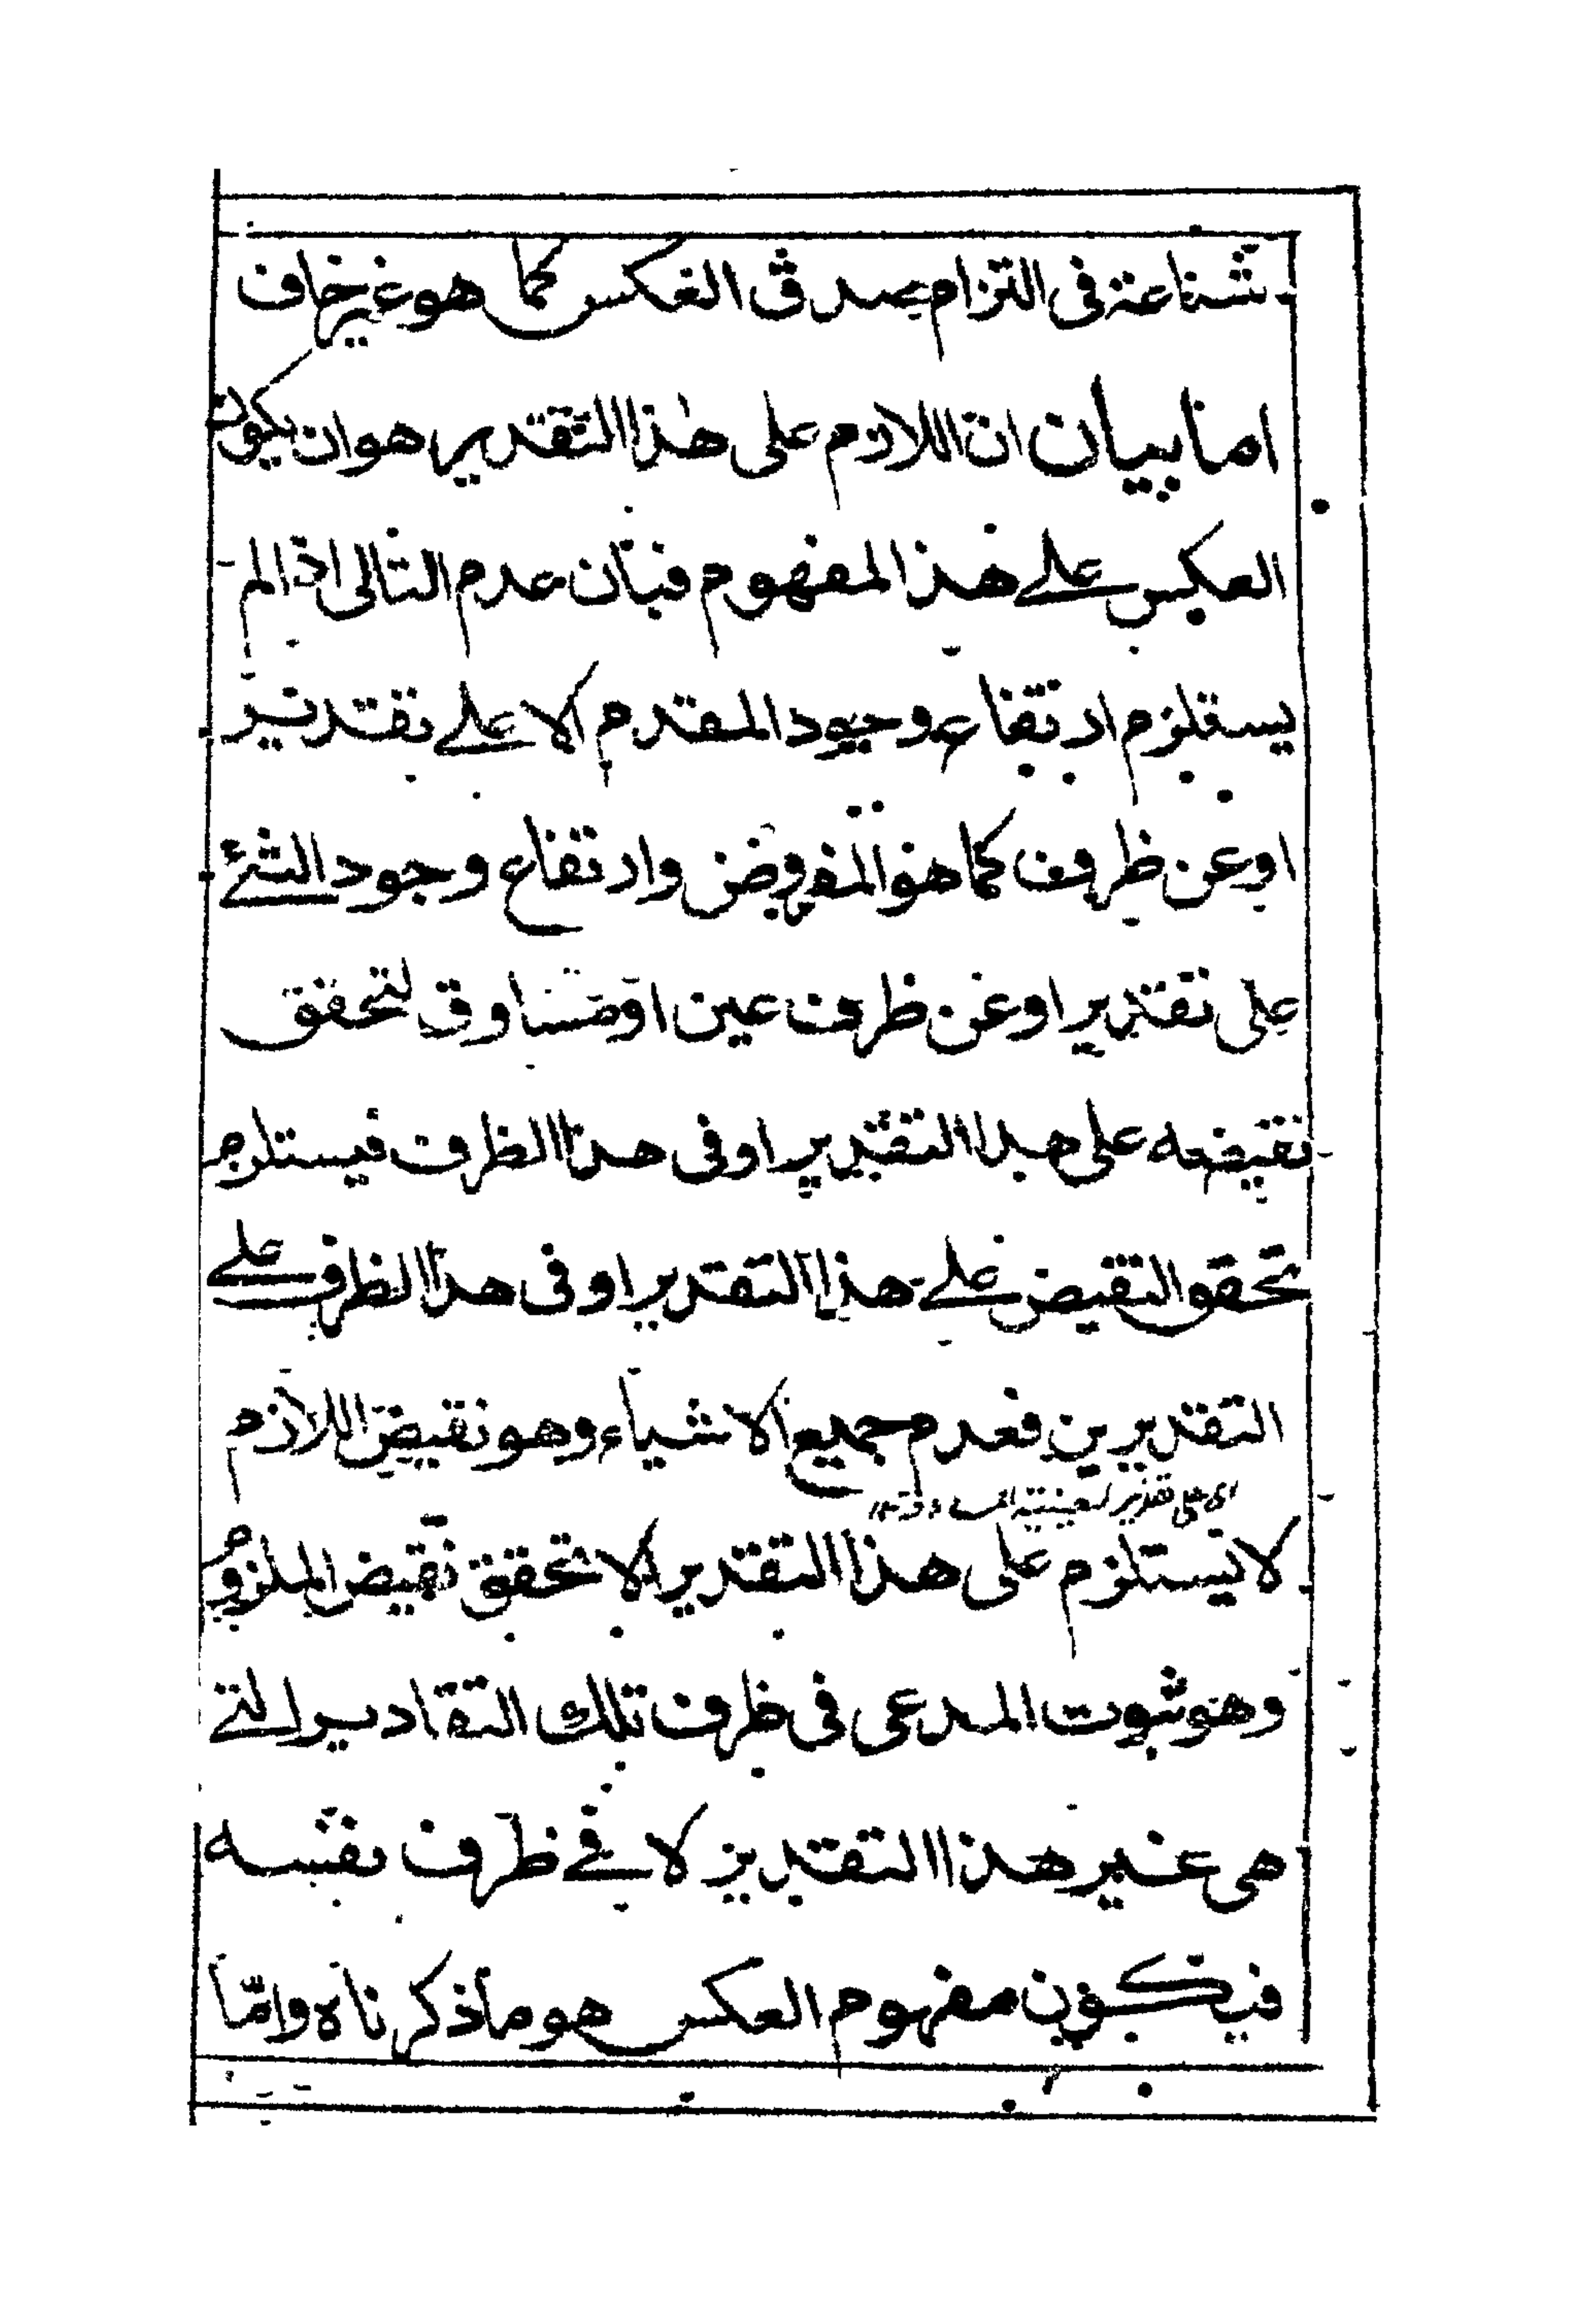 شناعة فى التزام صدق العكس كما هو غير خاف
اما بيان ان اللازم على هذا التقدير هو ان يكون
العكس على هذا المفهوم فبأن عدم التالى اذا لم
يستلزم ارتفاع وجود المقدم الا على تقدير
او عن ظرف كما هو المفروض وارتفاع وجود الشئ
على تقدير او عن ظرف عين او مساوق لتحقق
نقيضه على هذا التقدير او فى هذا الظرف فيستلزم
تحقق النقيض على هذا التقدير او فى هذا الظرف على
التقديرين فعدم جميع الاشياء وهو نقيض اللازم
اى على تقدير العينية
لا يستلزم على هذا التقدير الا تحقق نقيض الملزوم
وهو ثبوت المدعى فى ظرف تلك التقادير التى
هى غير هذا التقدير لا فى ظرف نفسه
فيكون مفهوم العكس هو ما ذكرناه وامّا